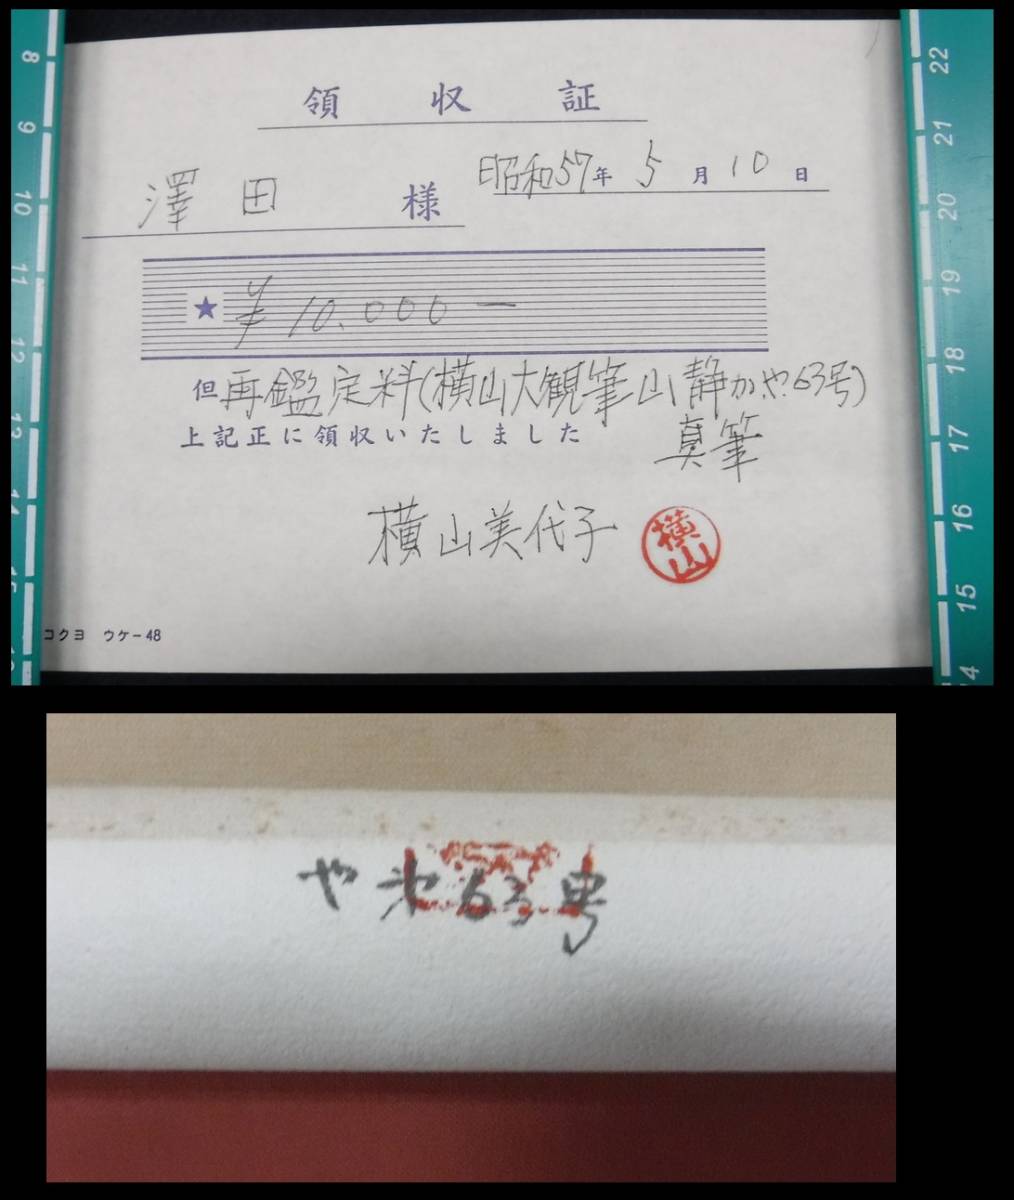 領収証
澤田様
昭和57年5月10日
★ ¥10.000ー
但 再鑑定料(横山大観筆山静か、や63号)
真筆
上記正に領収いたしました
横山美代子
横山
コクヨ ウケ-48
8
9
10
11
12
13
14
15
22
21
20
19
18
17
16
15
14
や 63号